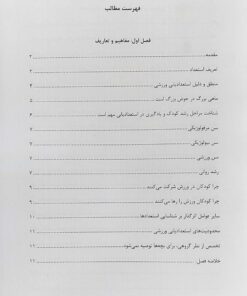 فهرست مطالب
فصل اول: مفاهیم و تعاریف
مقدمه ۲
تعریف استعداد ۳
منطق و دلیل استعدادیابی ورزشی ۴
ماهی بزرگ در حوض بزرگ است ۵
شناخت مراحل رشد کودک و یادگیری در استعدادیابی مهم است ۶
سن مرفولوژیکی ۷
سن بیولوژیکی ۷
سن ورزشی ۷
رشد روانی ۷
چرا کودکان در ورزش شرکت می‌کنند ۹
چرا کودکان ورزش را رها می‌کنند ۹
سایر عوامل اثرگذار بر شناسایی استعدادها ۱۰
محدودیت‌های استعدادیابی ورزشی ۱۱
تخصص از نظر گروهی، برای بچه‌ها توصیه نمی‌شود ۱۱
خلاصه فصل ۱۱